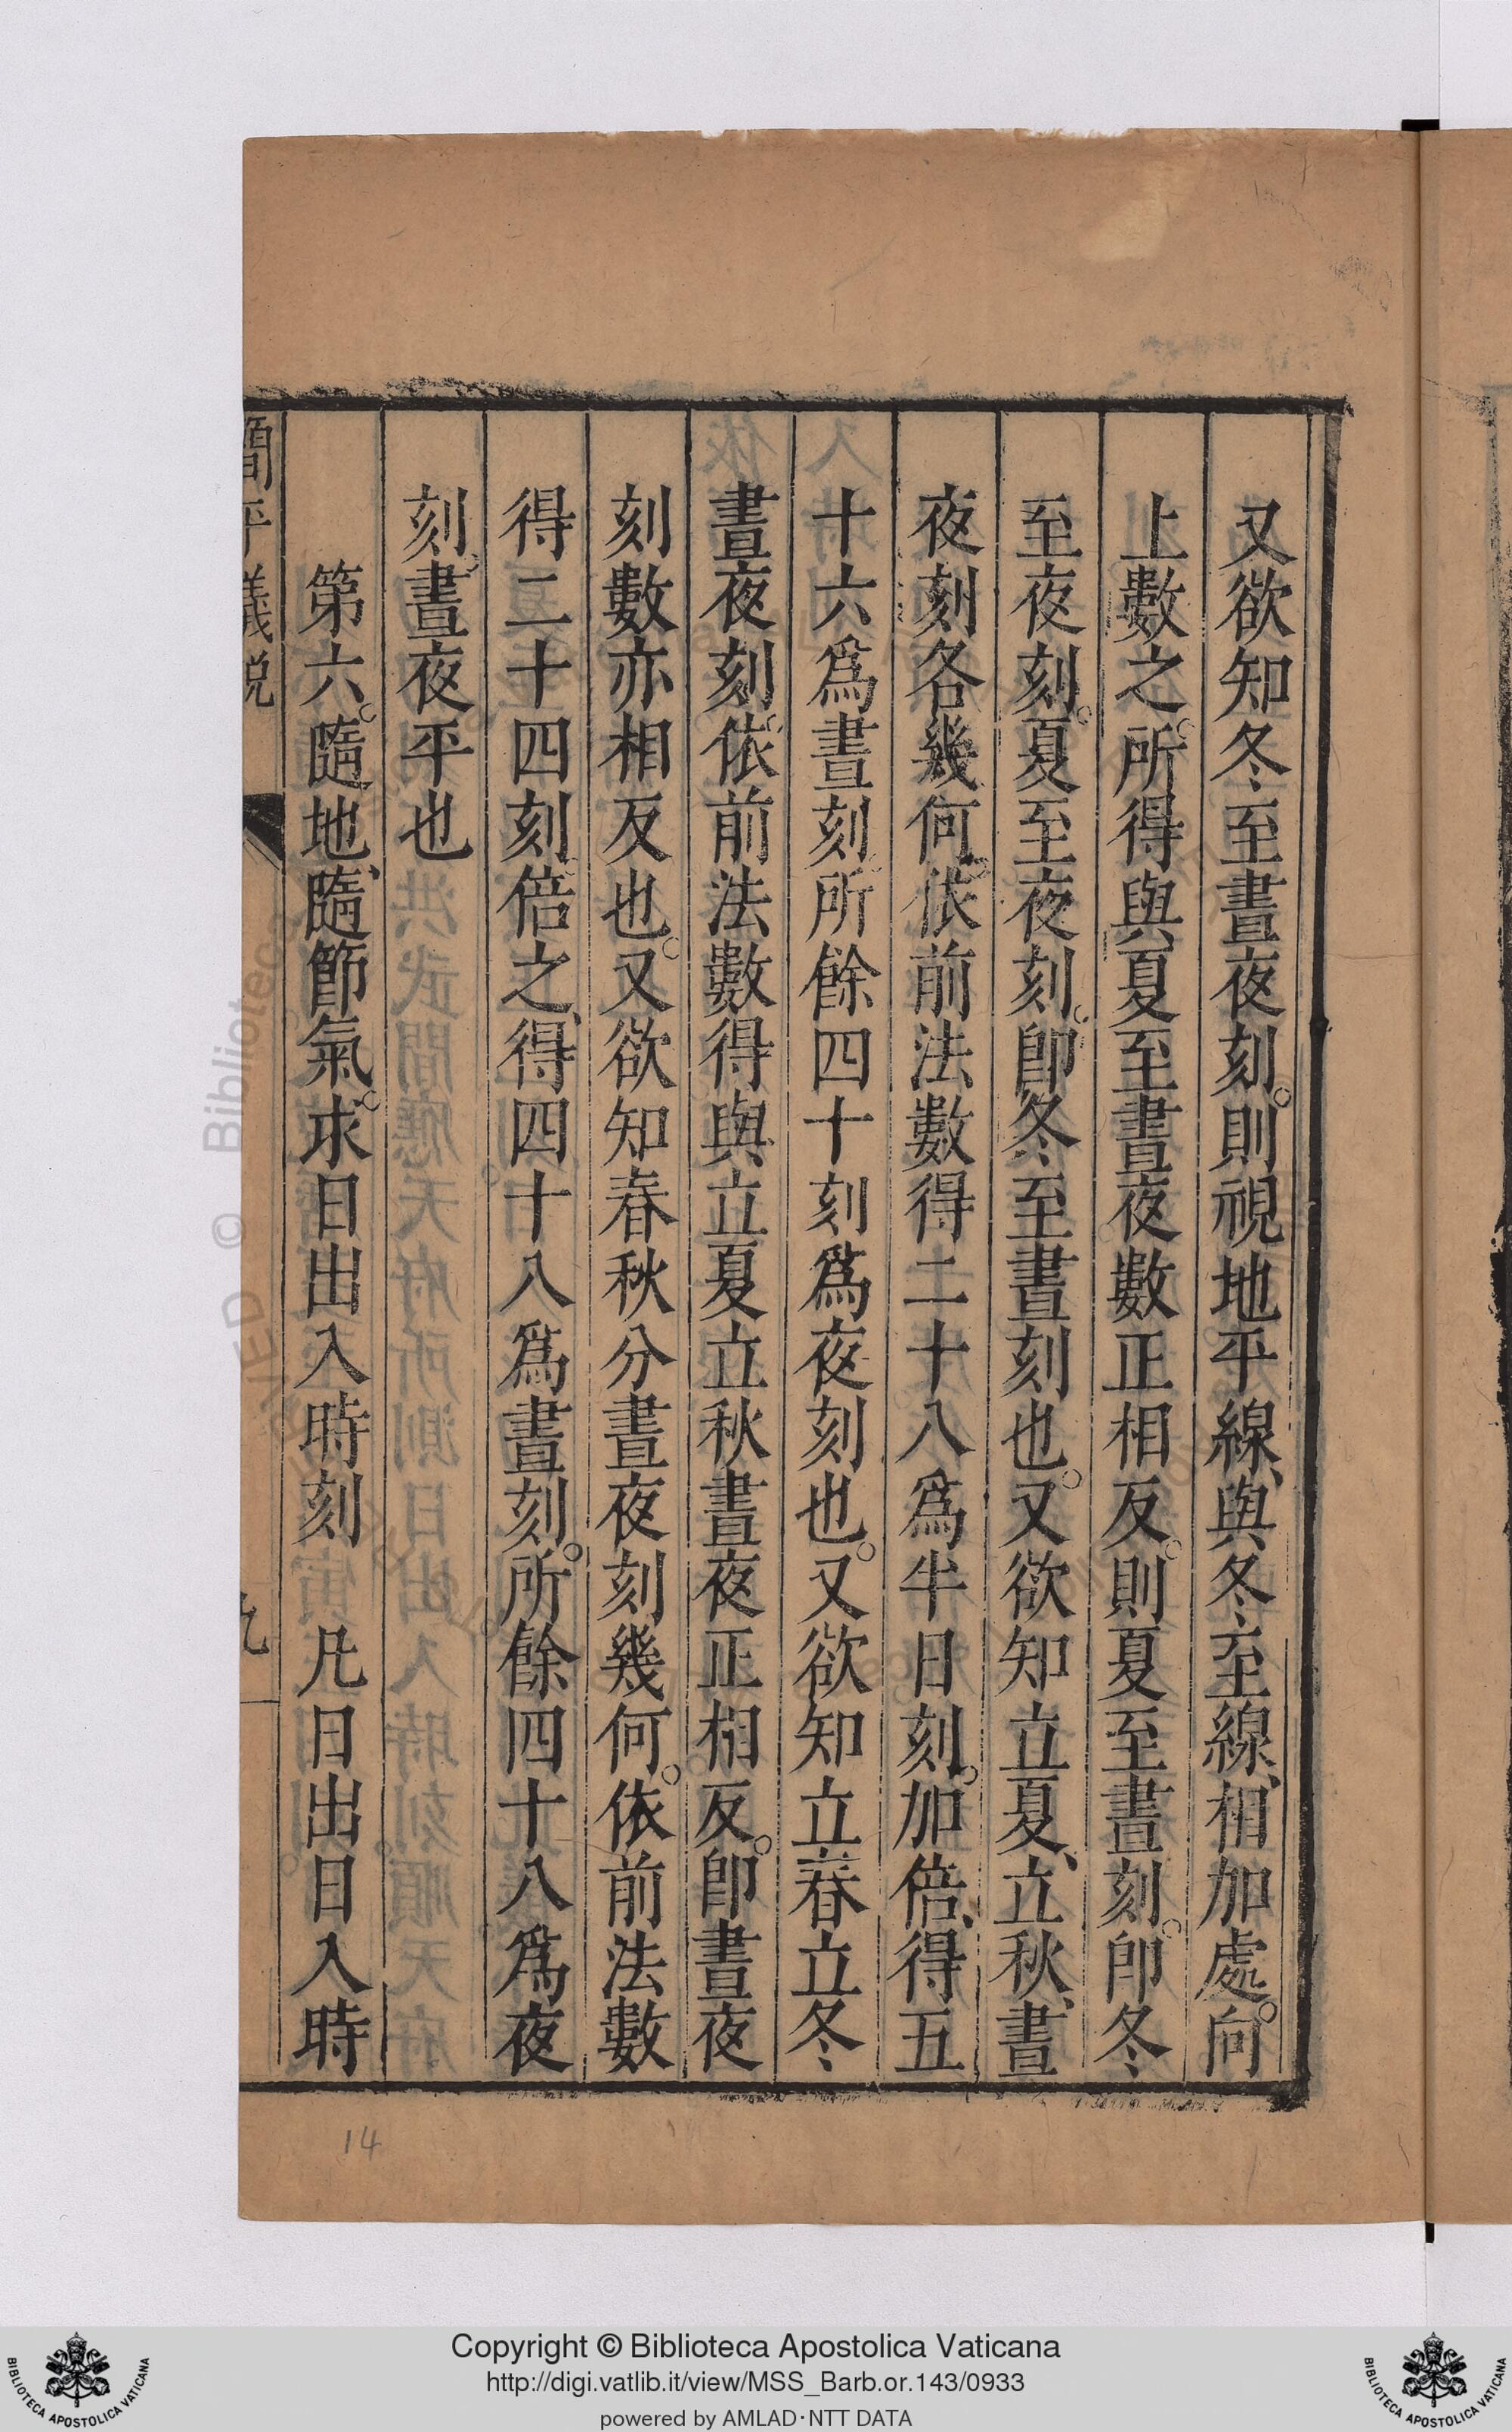 又欲知冬至晝夜刻。則視地平線、與冬至線、相加處。向
上數之。所得與夏至晝夜數正相反。則夏至晝刻。卽冬
至夜刻。夏至夜刻。卽冬至晝刻也。又欲知立夏、立秋、晝
夜刻各幾何。依前法數得二十八爲半日刻。加倍、得五
十六爲晝刻。所餘四十刻爲夜刻也。又欲知立春立冬
晝夜刻。依前法數得與立夏立秋晝夜正相反。卽晝夜
刻數亦相反也。又欲知春秋分晝夜刻幾何。依前法數
得二十四刻。倍之、得四十八爲晝刻。所餘四十八爲夜
刻、晝夜平也
第六。隨地、隨節氣。求日出入時刻 凡日出日入時
簡平儀說
九
14
Copyright © Biblioteca Apostolica Vaticana
http://digi.vatlib.it/view/MSS_Barb.or.143/0933
powered by AMLAD·NTT DATA
BIBLIOTECA APOSTOLICA VATICANA
BIBLIOTECA APOSTOLICA VATICANA